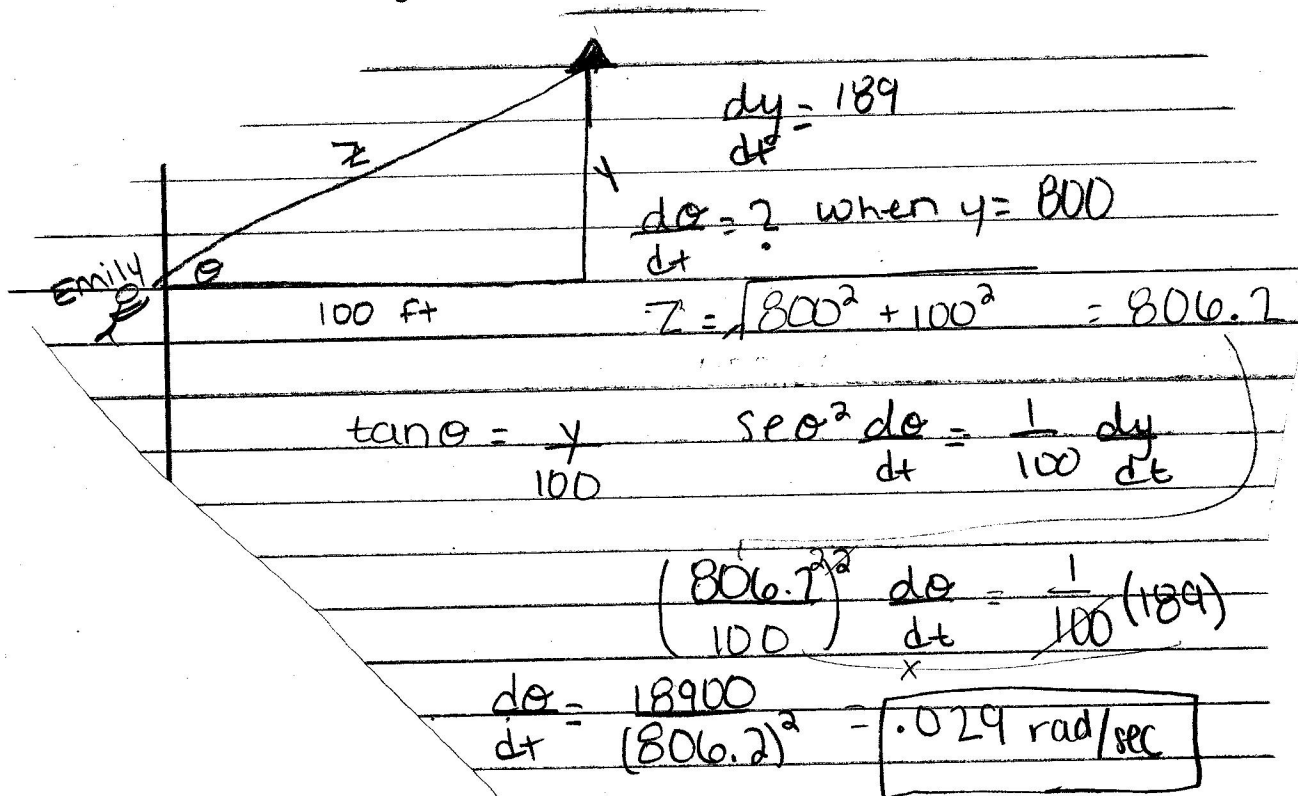 dy/dt = 189
z
y
dθ/dt = ? when y = 800
Emily
θ
100 ft
z = √800² + 100² = 806.2
tanθ = y/100
seθ² dθ/dt = 1/100 dy/dt
(806.2/100)² dθ/dt = 1/100 (189)
x
dθ/dt = 18900/(806.2)² = .029 rad/sec